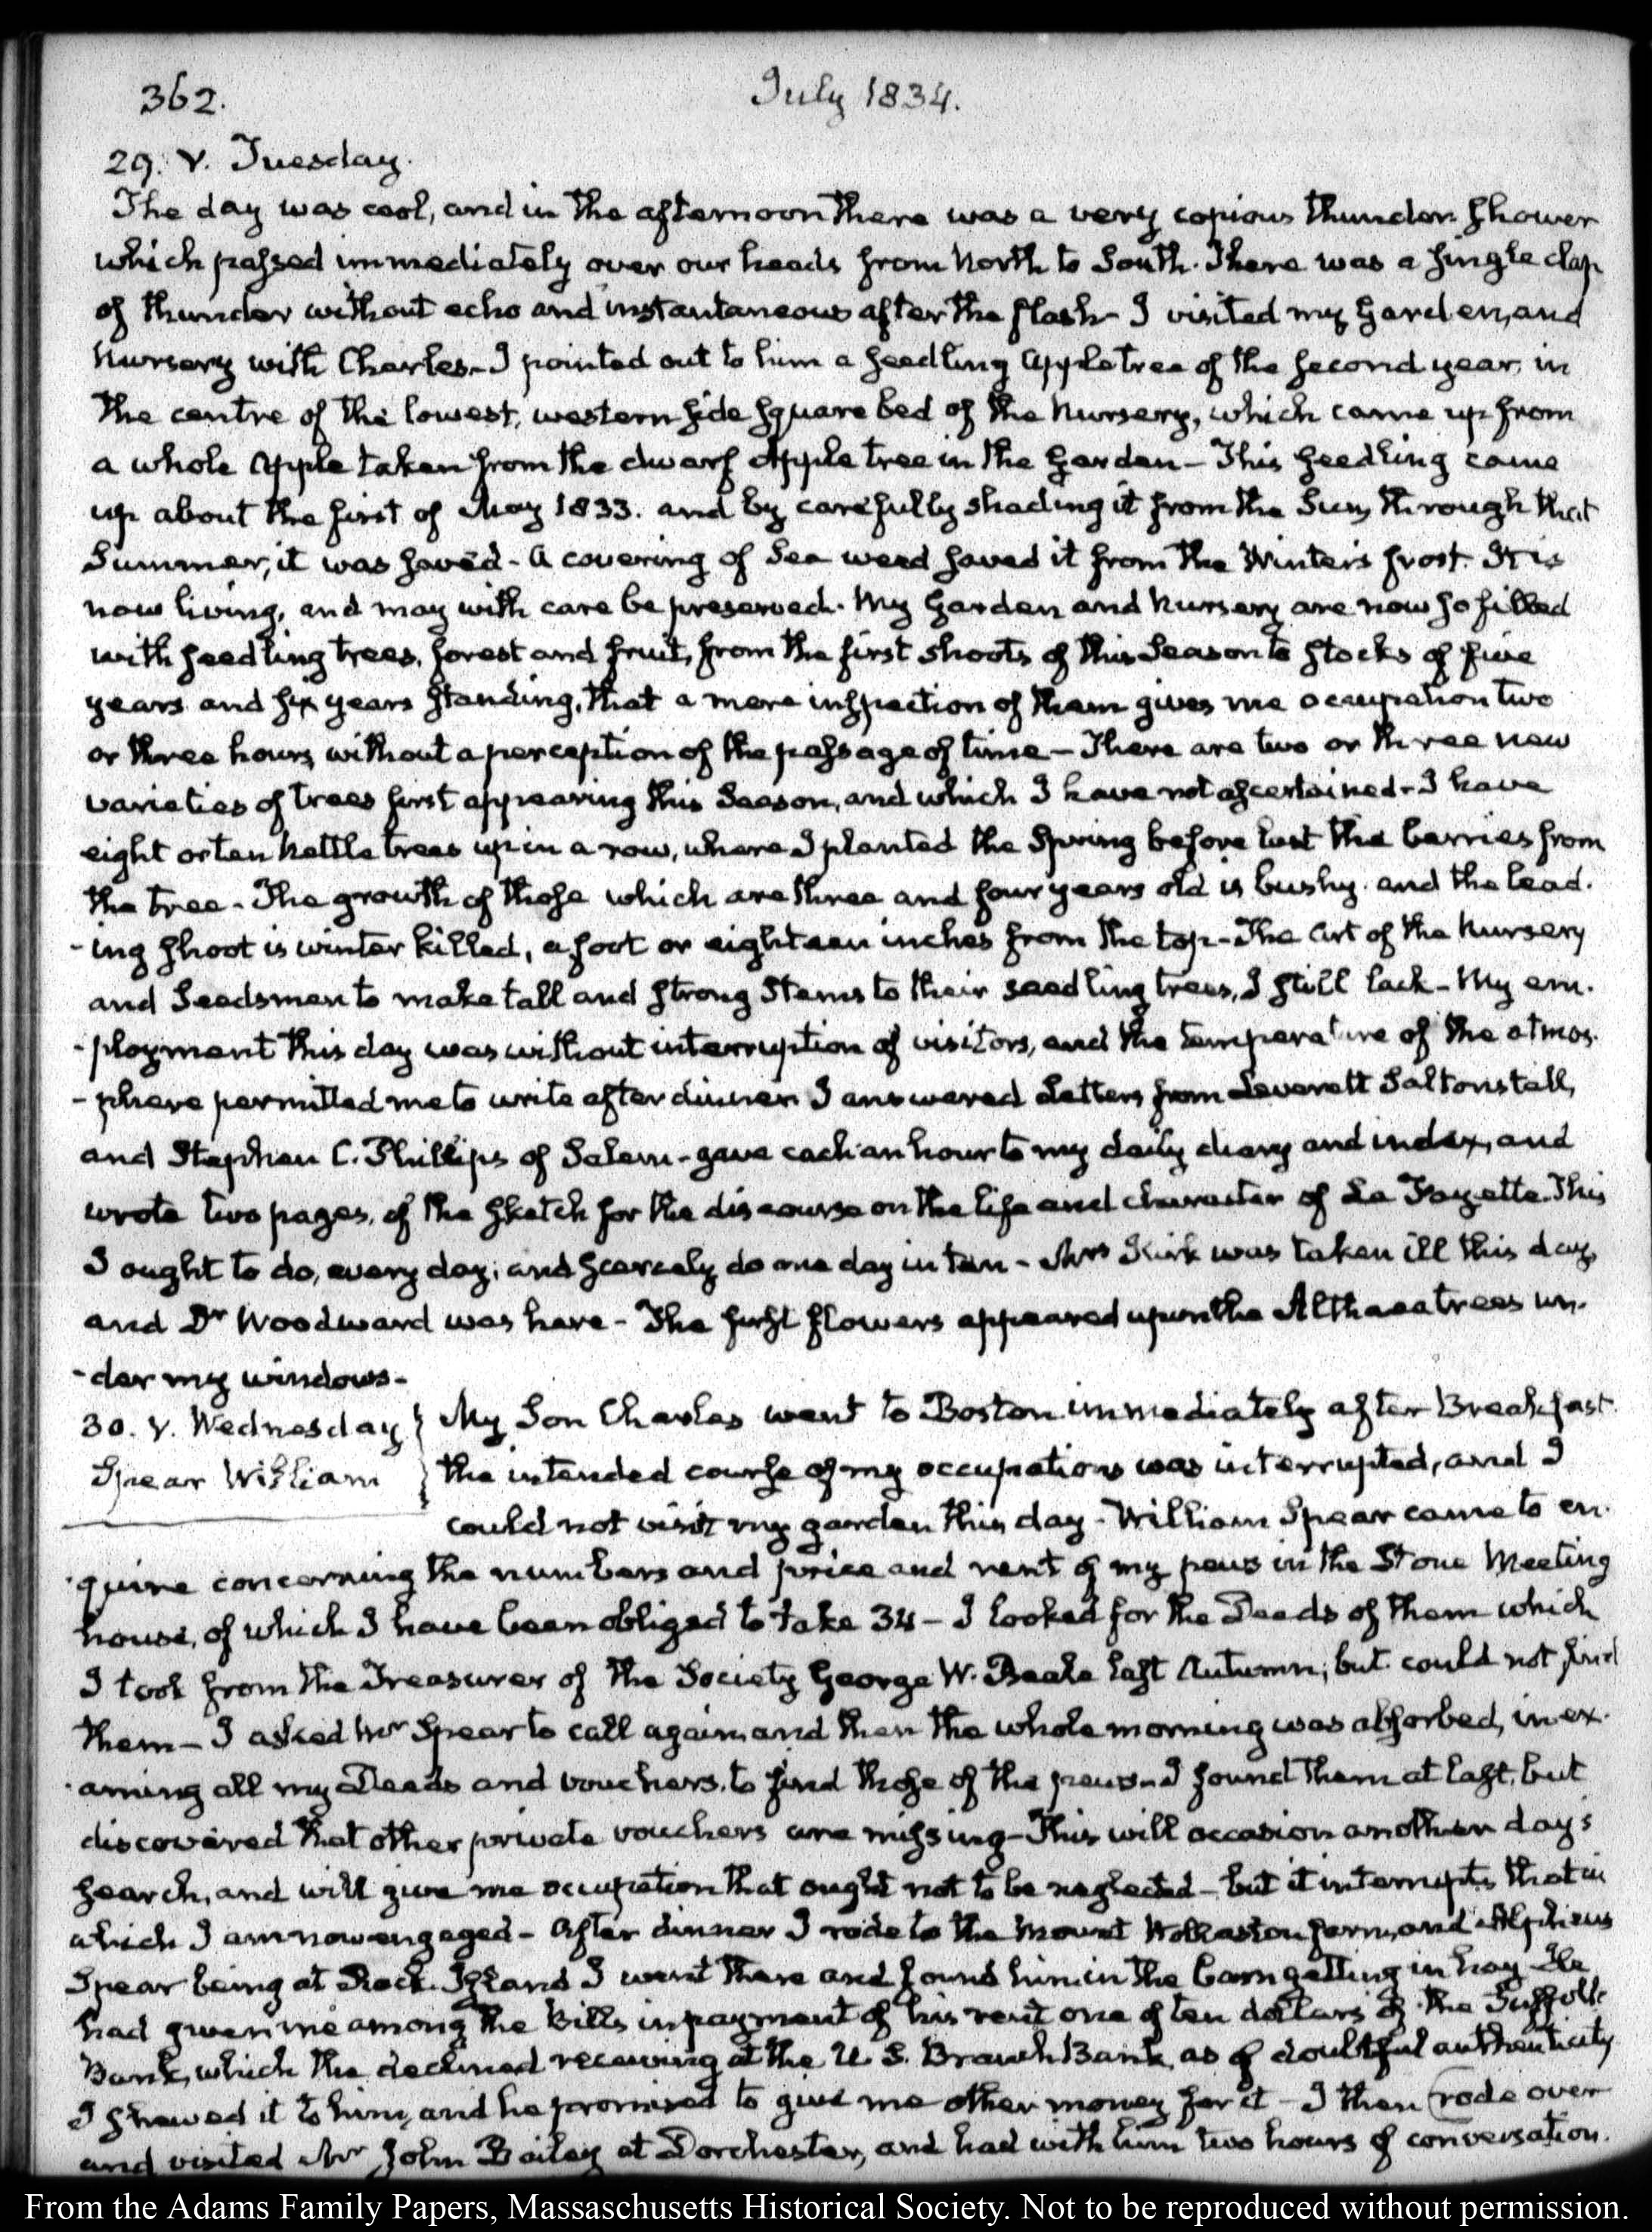 362.
July 1834.
29. V. Tuesday.
The day was cool, and in the afternoon there was a very copious thunder shower
which passed immediately over our heads from North to South. There was a single clap
of thunder without echo and instantaneous after the flash - I visited my Garden, and
Nursery with Charles - I pointed out to him a seedling Apple tree of the second year, in
the centre of the lowest, western side square bed of the Nursery, which came up from
a whole Apple taken from the dwarf Apple tree in the Garden - This seedling came
up about the first of May 1833. and by carefully shading it from the Sun, through that
Summer, it was saved - A covering of Sea weed saved it from the Winter's frost. It is
now living, and may with care be preserved. My Garden and Nursery are now so filled
with seedling trees, forest and fruit, from the first shoots of this Season to stocks of five
years and six years standing, that a mere inspection of them gives me occupation two
or three hours without a perception of the passage of time - There are two or three new
varieties of trees first appearing this Season, and which I have not ascertained - I have
eight or ten Nettle trees up in a row, where I planted the Spring before last the berries from
the tree - The growth of those which are three and four years old is bushy. and the lead-
-ing shoot is winter killed, a foot or eighteen inches from the top - The Art of the Nursery
and Seedsmen to make tall and strong Stems to their seedling trees, I still lack - My em-
-ployment this day was without interruption of visitors, and the temperature of the atmos-
-phere permitted me to write after dinner I answered Letters from Leverett Saltonstall,
and Stephen C. Phillips of Salem - gave each an hour to my daily diary and index, and
wrote two pages, of the sketch for the discourse on the life and character of La Fayette. This
I ought to do, every day; and scarcely do one day in ten - Mrs Kirk was taken ill this day,
and Dr Woodward was here - The first flowers appeared upon the Althaea trees un-
-der my windows -
30. V. Wednesday
Spear William
My Son Charles went to Boston immediately after Breakfast.
the intended course of my occupations was interrupted, and I
could not visit my garden this day - William Spear came to en-
-quire concerning the numbers and price and rent of my pews in the Stone Meeting
house, of which I have been obliged to take 34 - I looked for the Deeds of them which
I took from the Treasurer of the Society George W. Beale last Autumn; but could not find
them - I asked Mr Spear to call again, and then the whole morning was absorbed, in ex-
-amining all my Deeds and vouchers, to find those of the pews - I found them at last, but
discovered that other private vouchers are missing - This will occasion another day's
search, and will give me occupation that ought not to be neglected - but it interrupts that in
which I am now engaged - After dinner I rode to the Mount Wollaston farm, and Alpheus
Spear being at Rock Island I went there and found him in the barn getting in hay. He
had given me among the bills in payment of his rent one of ten dollars of the Suffolk
Bank, which the declined receiving at the U. S. Branch Bank, as of doubtful authenticity
I shewed it to him, and he promised to give me other money for it - I then rode over
and visited Mr John Bailey at Dorchester, and had with him two hours of conversation.
From the Adams Family Papers, Massachusetts Historical Society. Not to be reproduced without permission.